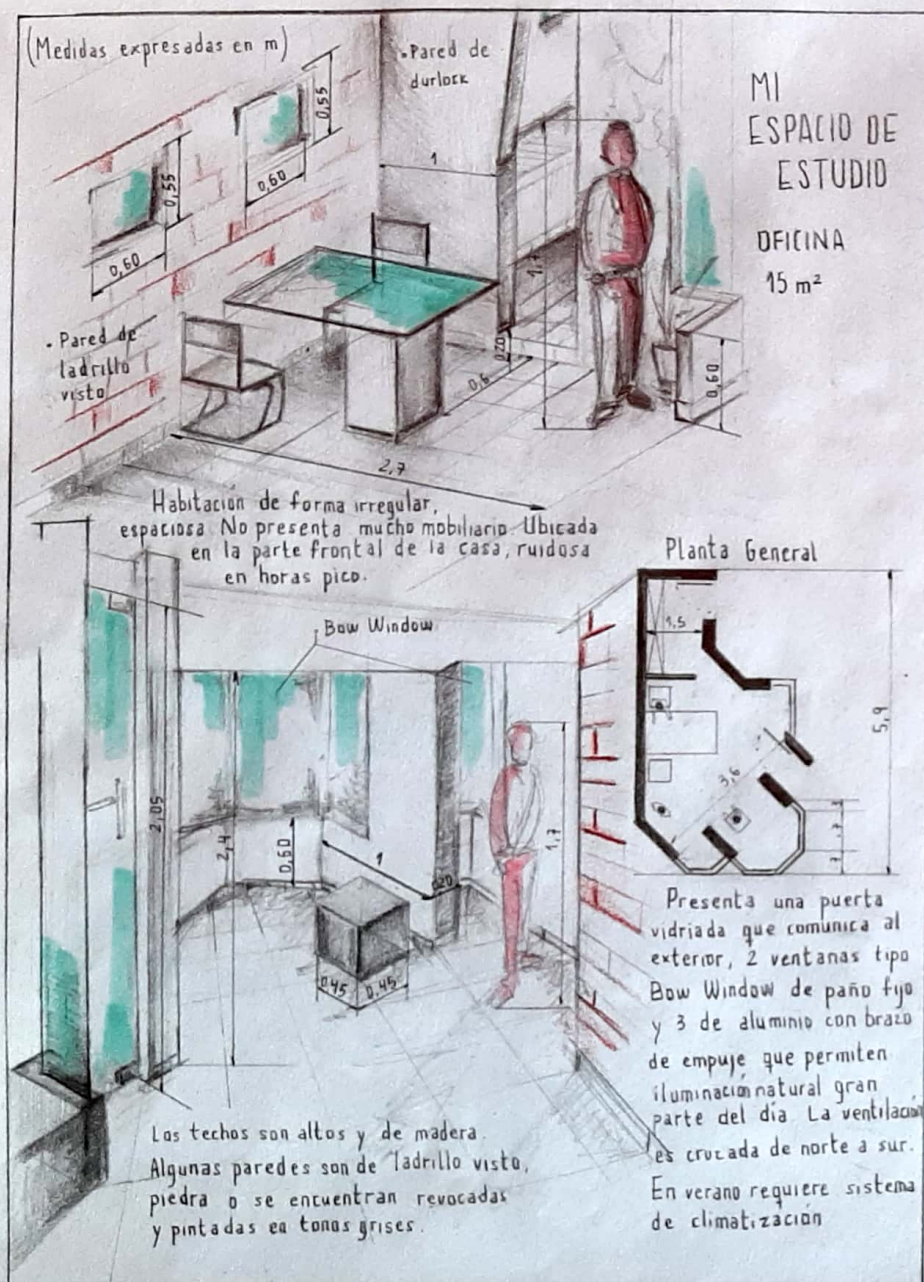 (Medidas expresadas en m)
• Pared de
durlock
MI
ESPACIO DE
ESTUDIO
OFICINA
15 m²
0,55
0,60
0,55
0,60
1
1,7
0,20
0,6
0,60
2,7
• Pared de
ladrillo
visto
Habitación de forma irregular,
espaciosa. No presenta mucho mobiliario. Ubicada
en la parte frontal de la casa, ruidosa
en horas pico.
Bow Window
2,05
2,4
0,60
1
0,20
0,45
0,45
1,7
Planta General
1,5
5,9
3,6
1
1,7
Presenta una puerta
vidriada que comunica al
exterior, 2 ventanas tipo
Bow Window de paño fijo
y 3 de aluminio con brazo
de empuje que permiten
iluminación natural gran
parte del día. La ventilación
es cruzada de norte a sur.
En verano requiere sistema
de climatización
Los techos son altos y de madera.
Algunas paredes son de ladrillo visto,
piedra o se encuentran revocadas
y pintadas en tonos grises.